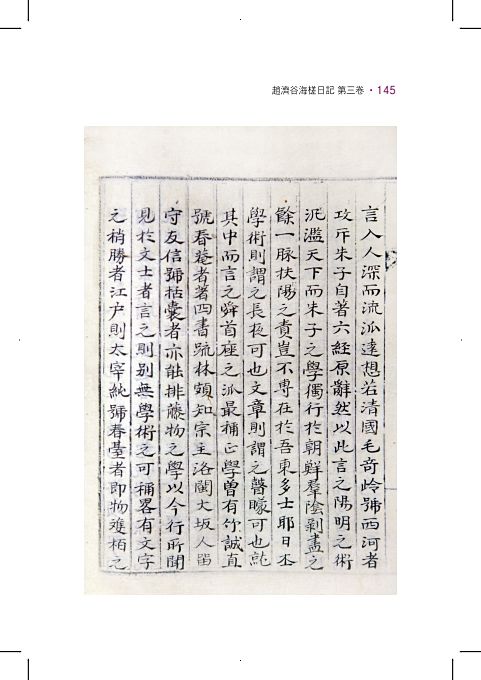 趙濟谷海槎日記 第三卷 • 145
言入人深而流派遠想若清國毛奇岭號西河者
攻斥朱子自著六經原辭然以此言之陽明之術
汎濫天下而朱子之學獨行於朝鮮羣陰剝盡之
餘一脉扶陽之責豈不專在於吾東多士耶日本
學術則謂之長夜可也文章則謂之瞽矇可也就
其中而言之舜首座之派最稱正學曽有竹誠直
號春菴者著四書䟽林頗知宗主洛閩大坂人留
守友信號括囊者亦能排藤物之學以今行所聞
見於文士者言之則別無學術之可稱畧有文字
之稍勝者江户則太宰純號春臺者即物雙栢之